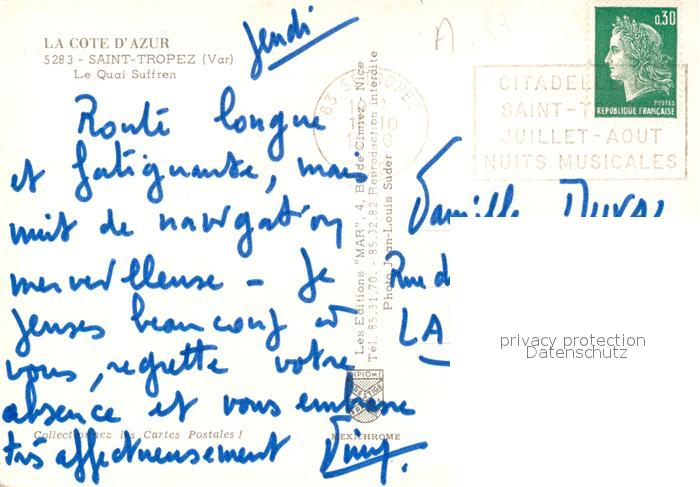 LA COTE D'AZUR
5283 - SAINT-TROPEZ (Var)
Le Quai Suffren
Jeudi
A
0,30
POSTES
REPUBLIQUE FRANÇAISE
83 ST TROPEZ
CITADELLE
SAINT-T
JUILLET-AOUT
NUITS MUSICALES
Route longue
et fatiguante, mais
nuit de navigation
merveilleuse - Je
penses beaucoup à
vous, regrette votre
absence et vous embrasse
très affectueusement
Famille DUVAL
Rue d
LA
Les Editions "MAR", 4, Bd de Cimiez - Nice
Tél. 85.31.70. - 85.32.82 Reproduction interdite
Photo Jean-Louis Suder
DIPLOME
PRESTIGE
MEXICHROME
Collectionnez les Cartes Postales !
privacy protection
Datenschutz